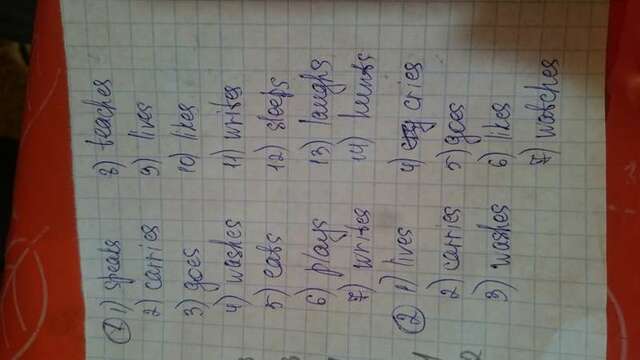 1 1) speaks
2) carries
3) goes
4) washes
5) eats
6) plays
7) writes
8) teaches
9) lives
10) likes
11) writes
12) sleeps
13) laughs
14) hunts
2 1) lives
2) carries
3) washes
4) cries
5) goes
6) likes
7) watches